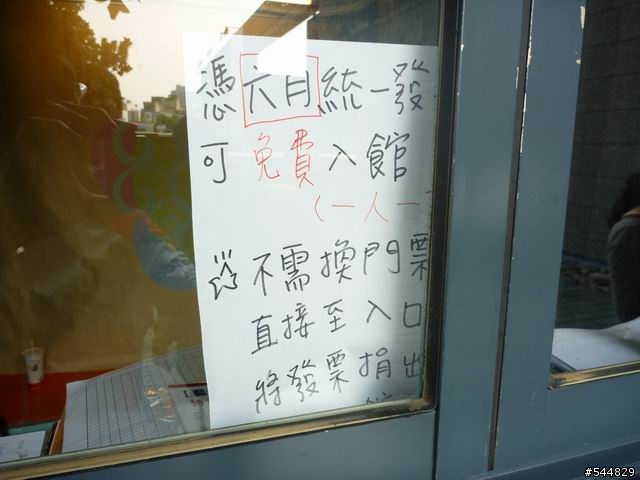 憑六月統一發
可免費入館
(一人一
☆不需換門票
直接至入口
將發票捐出
#544829